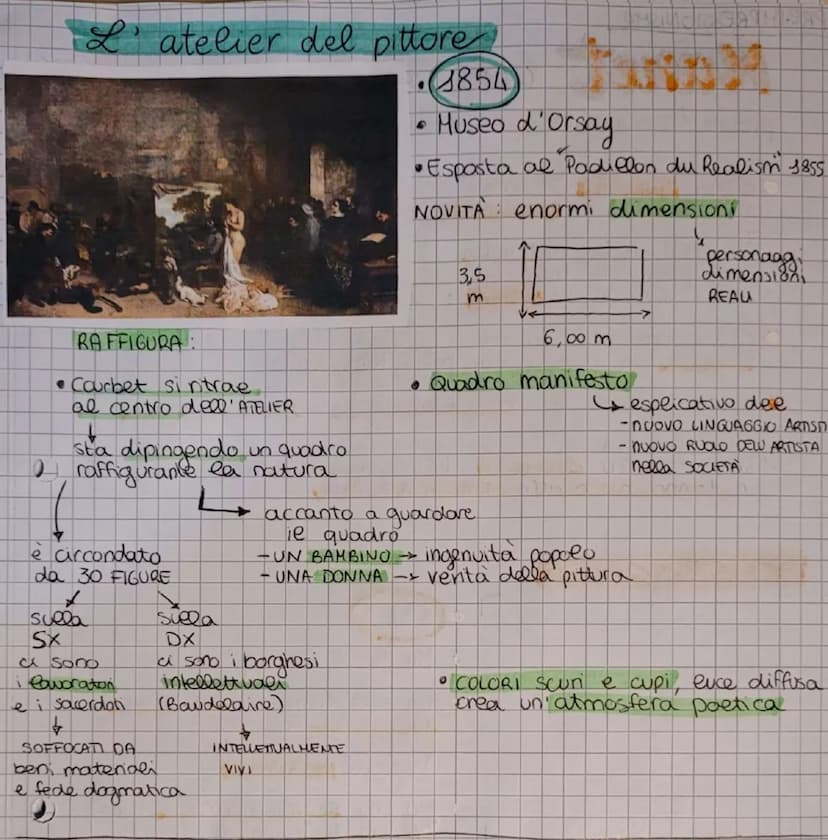 L' atelier del pittore
• 1854
• Museo d'Orsay
• Esposta al "Padillon du Realism" 1855
NOVITÀ: enormi dimensioni
personaggi
dimensioni
REALI
3,5
m
6,00 m
RAFFIGURA:
• Courbet si ritrae
al centro dell'ATELIER
sta dipingendo un quadro
raffigurante la natura
accanto a guardare
il quadro
- UN BAMBINO → ingenuità popolo
- UNA DONNA → verità della pittura
è circondato
da 30 FIGURE
sulla
SX
ci sono
i lavoratori
e i sacerdoti
SOFFOCATI DA
beni materiali
e fede dogmatica
sulla
DX
ci sono i borghesi
intellettuali
(Baudelaire)
INTELLETTUALMENTE
VIVI
• Quadro manifesto
esplicativo del
- NUOVO LINGUAGGIO ARTIST
- NUOVO RUOLO DELL'ARTISTA
nella SOCIETÀ
• COLORI scuri e cupi, luce diffusa
crea un'atmosfera poetica